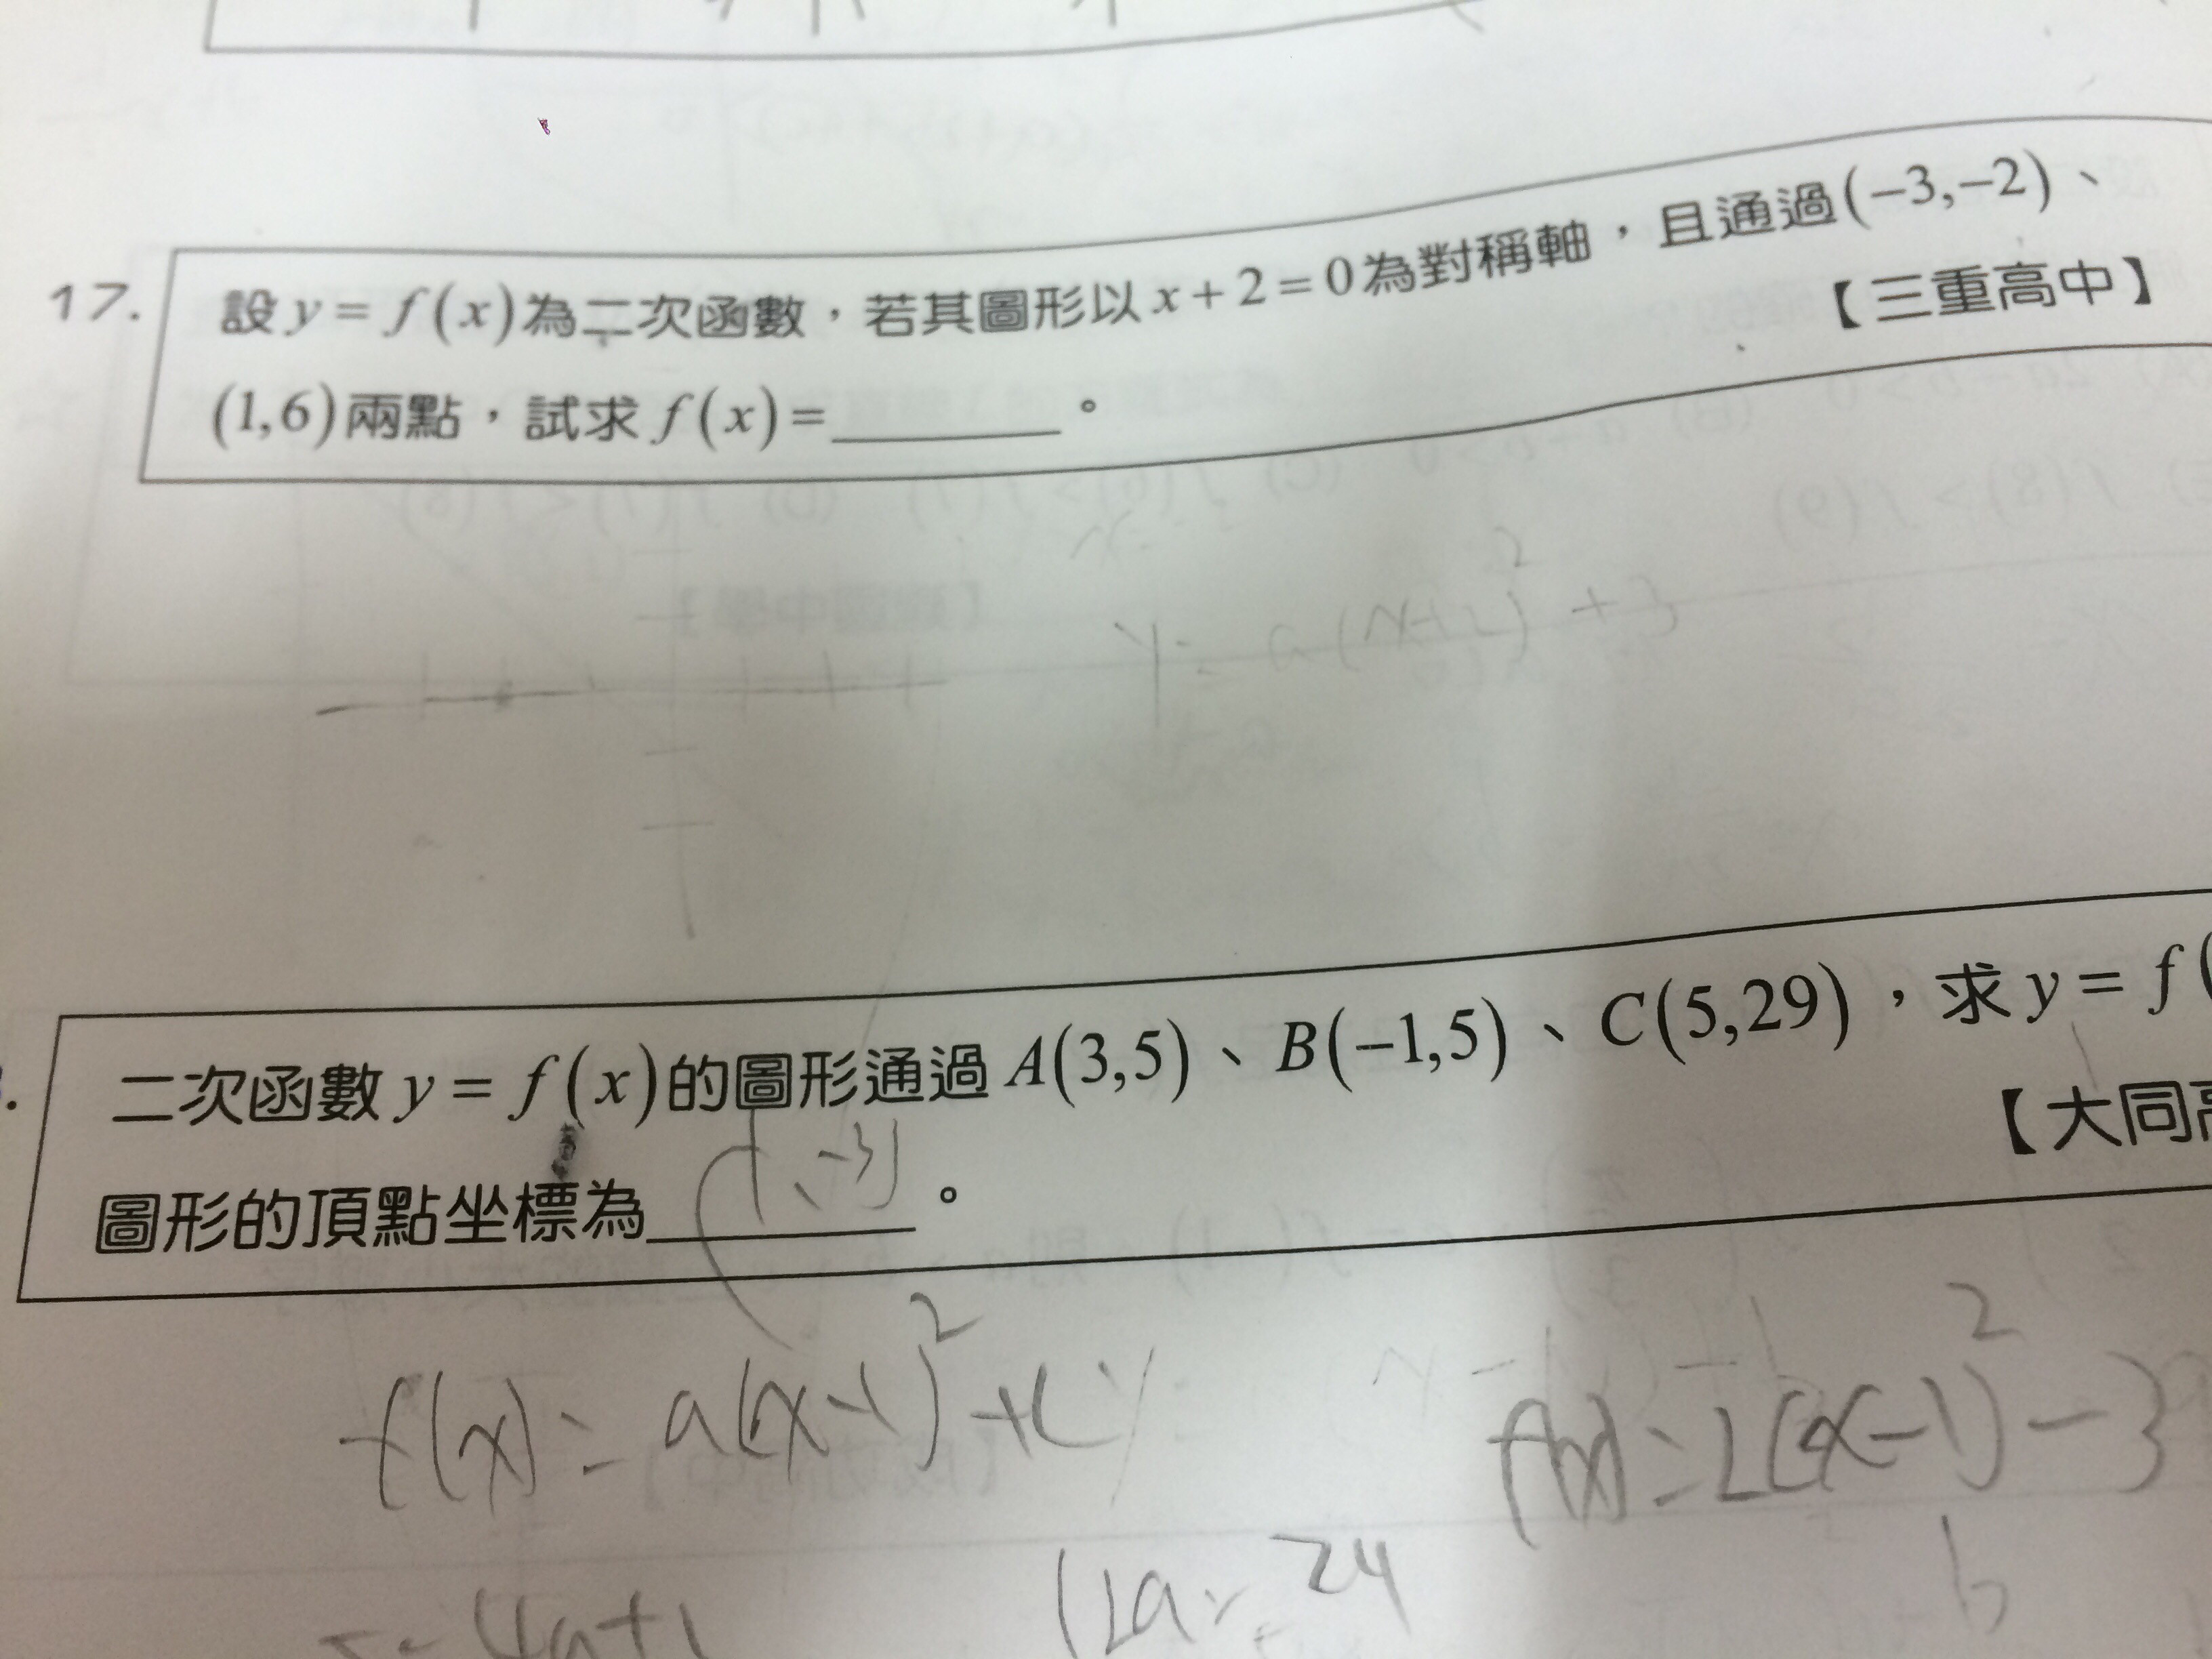 17.
設 y = f(x) 為二次函數，若其圖形以 x + 2 = 0 為對稱軸，且通過 (-3,-2)、
(1,6) 兩點，試求 f(x) = ________ 。
【三重高中】
y = a(x+2)² + 3
二次函數 y = f(x) 的圖形通過 A(3,5)、B(-1,5)、C(5,29)，求 y = f(
【大同高
圖形的頂點坐標為 (1、-3) 。
f(x) = a(x-1)² + k
f(x) = 2(x-1)² - 3
12a = 24